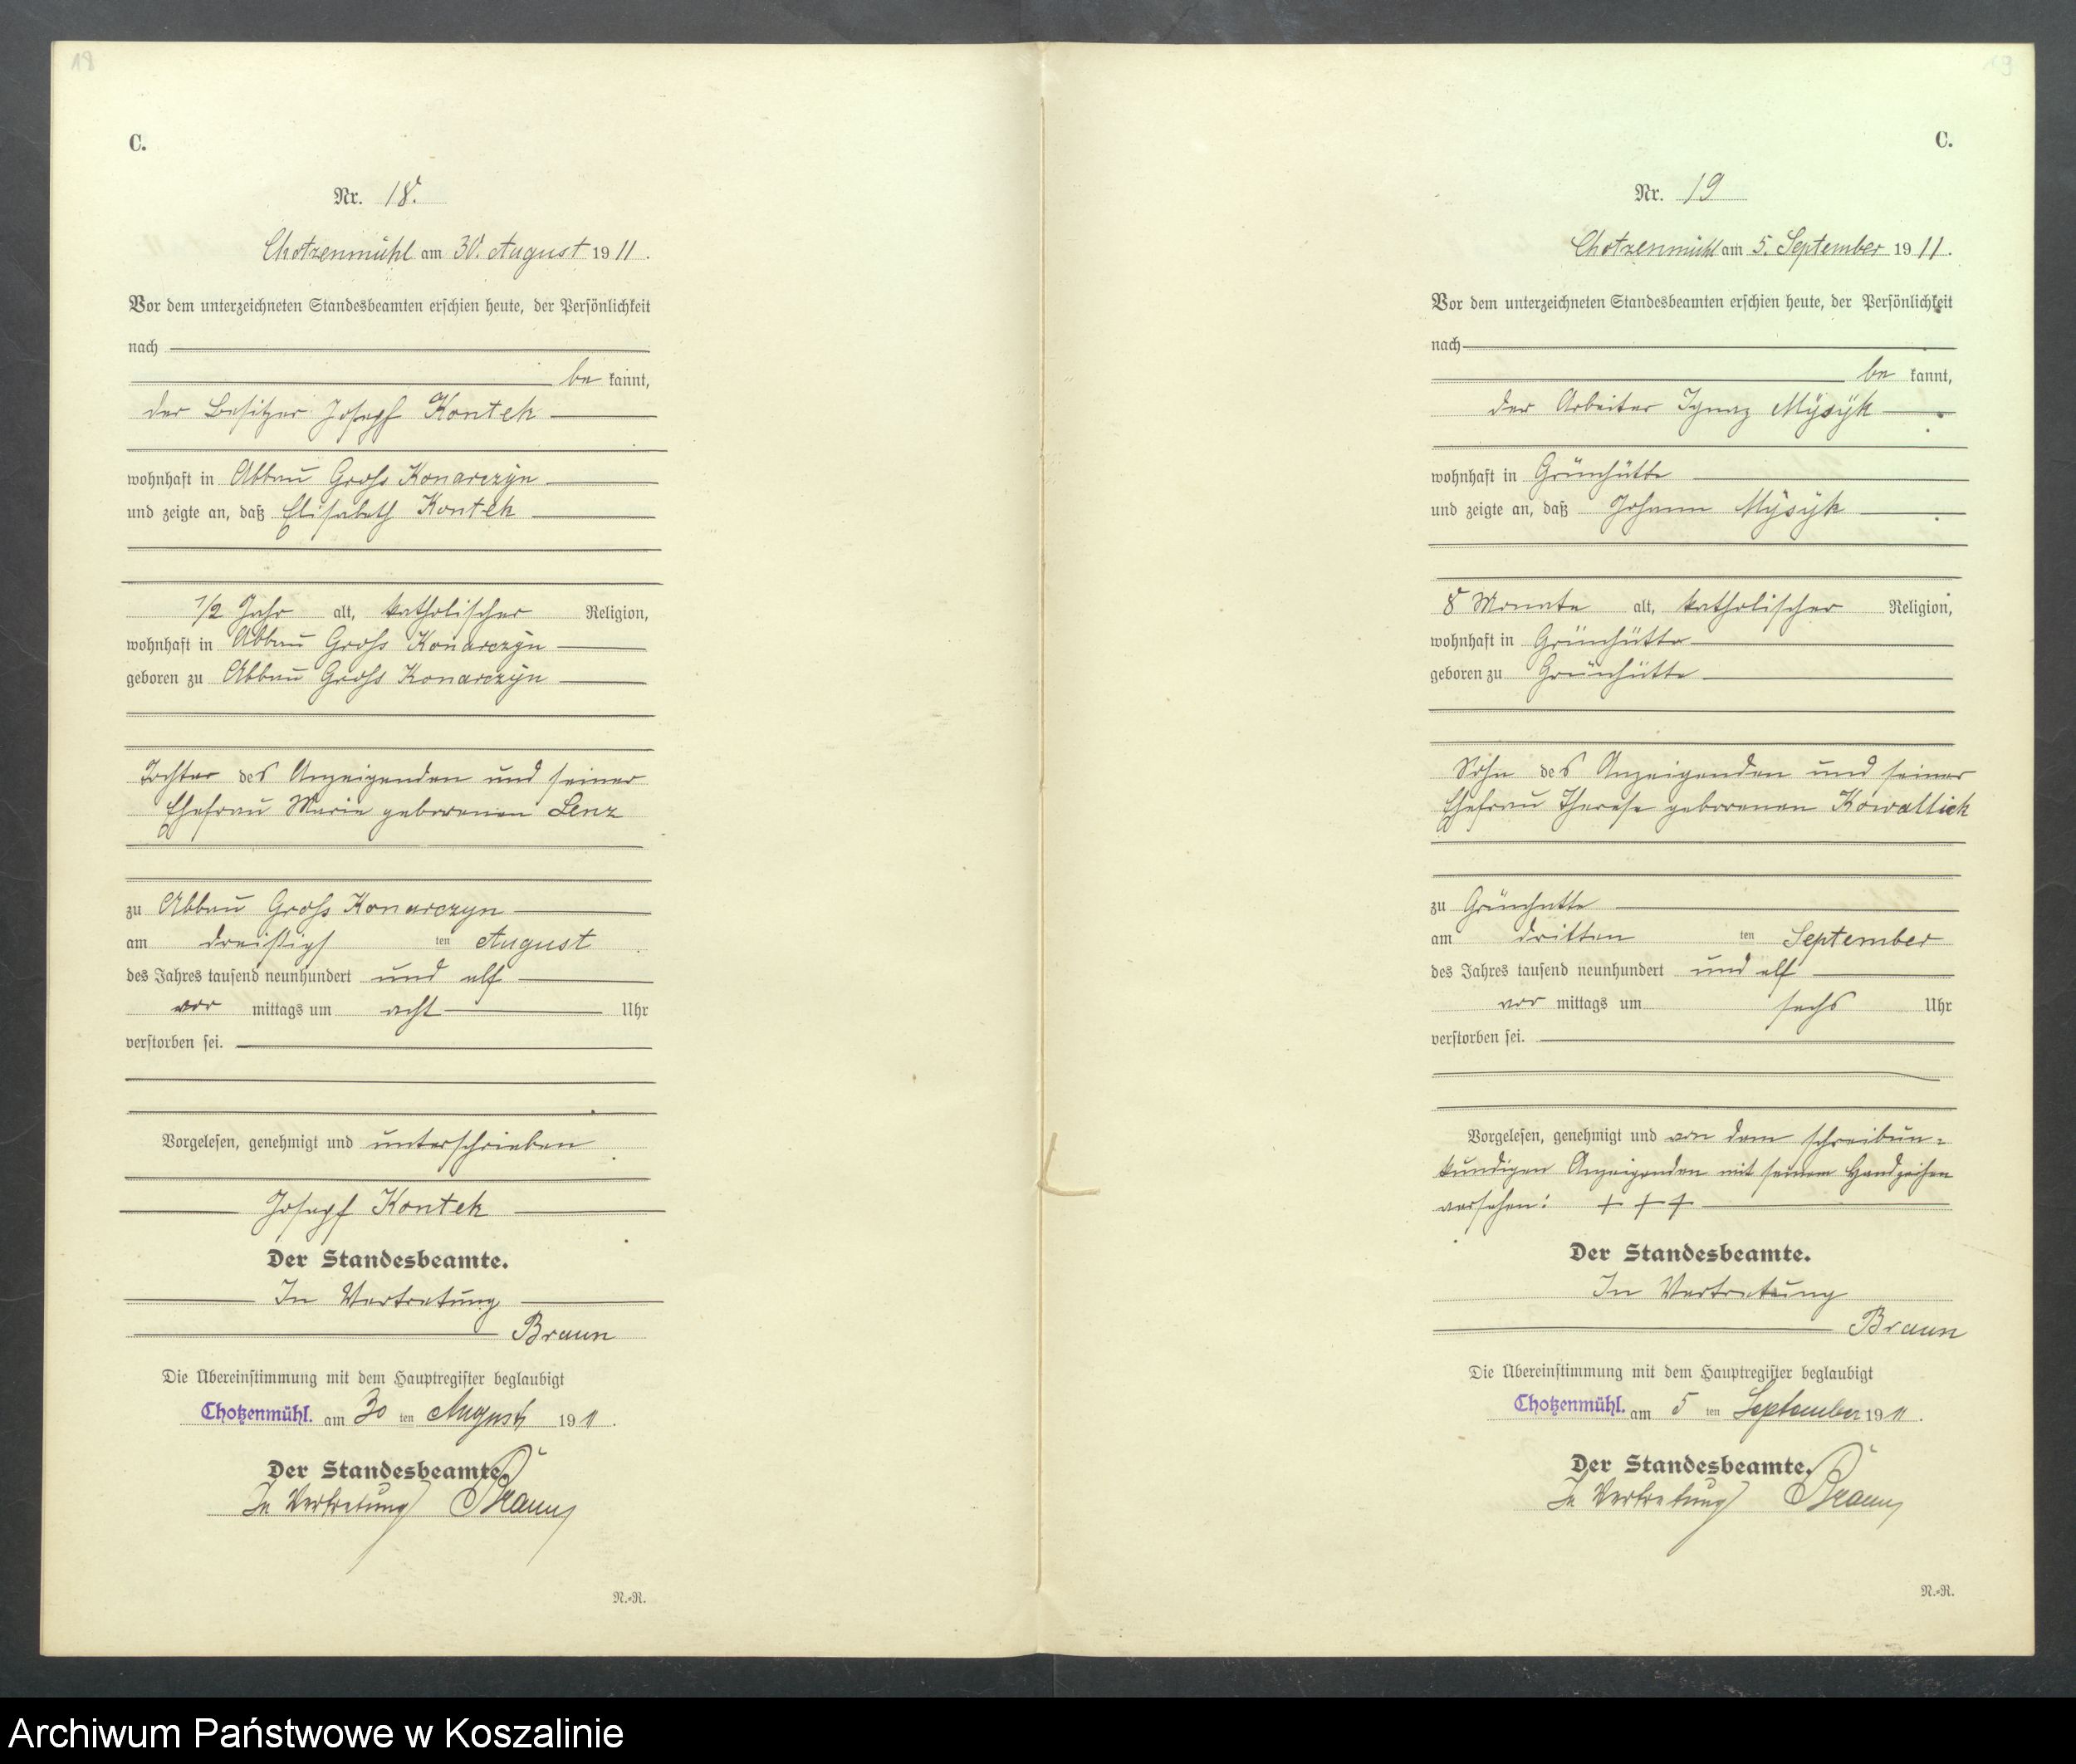 18
C.
Nr. 18.
Chotzenmühl am 30. August 1911.
Vor dem unterzeichneten Standesbeamten erschien heute, der Persönlichkeit
nach
be kannt,
der Besitzer Joseph Kontek
wohnhaft in Abbau Gross Konarczyn
und zeigte an, daß Elisabeth Kontek
1/2 Jahr alt, katholischer Religion,
wohnhaft in Abbau Gross Konarczyn
geboren zu Abbau Gross Konarczyn
Tochter des Anzeigenden und seiner
Ehefrau Marie geborenen Lenz
zu Abbau Gross Konarczyn
am dreißigs ten August
des Jahres tausend neunhundert und elf
vor mittags um acht Uhr
verstorben sei.
Vorgelesen, genehmigt und unterschrieben
Joseph Kontek
Der Standesbeamte.
In Vertretung
Braun
Die Übereinstimmung mit dem Hauptregister beglaubigt
Chotzenmühl. am 30 ten August 1911.
Der Standesbeamte.
In Vertretung Braun
N.-R.
19
C.
Nr. 19
Chotzenmühl am 5. September 1911.
Vor dem unterzeichneten Standesbeamten erschien heute, der Persönlichkeit
nach
be kannt,
der Arbeiter Ignaz Mÿsÿk
wohnhaft in Grünhütte
und zeigte an, daß Johann Mÿsÿk
8 Monate alt, katholischer Religion,
wohnhaft in Grünhütte
geboren zu Grünhütte
Sohn des Anzeigenden und seiner
Ehefrau Therese geborenen Kowallick
zu Grünhütte
am dritten ten September
des Jahres tausend neunhundert und elf
vor mittags um sechs Uhr
verstorben sei.
Vorgelesen, genehmigt und von dem schreibun-
kundigen Anzeigenden mit seinem Handzeichen
versehen: + + +
Der Standesbeamte.
In Vertretung
Braun
Die Übereinstimmung mit dem Hauptregister beglaubigt
Chotzenmühl. am 5 ten September 1911.
Der Standesbeamte.
In Vertretung Braun
N.-R.
Archiwum Państwowe w Koszalinie